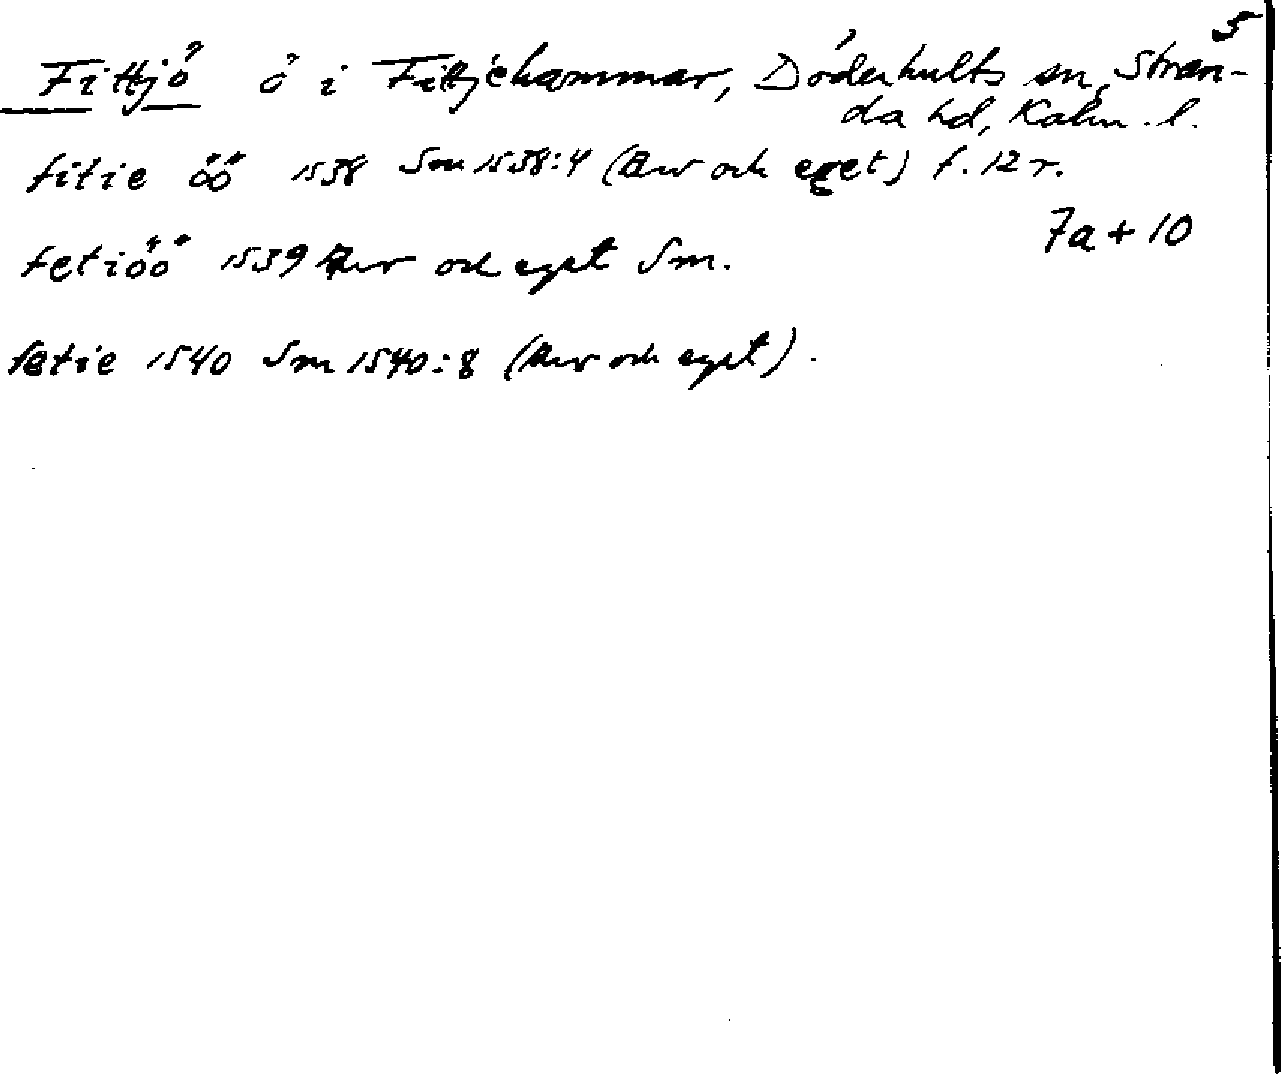 5
Fittjö ö i Fittjehammar, Döderhults sn, Stran-
da hd, Kalm. l.
fitie öö 1538 Sm 1538:4 (Arv och eget) f. 12 r.
7a + 10
fetiöö 1539 Arv och eget Sm.
fetie 1540 Sm 1540:8 (Arv och eget).